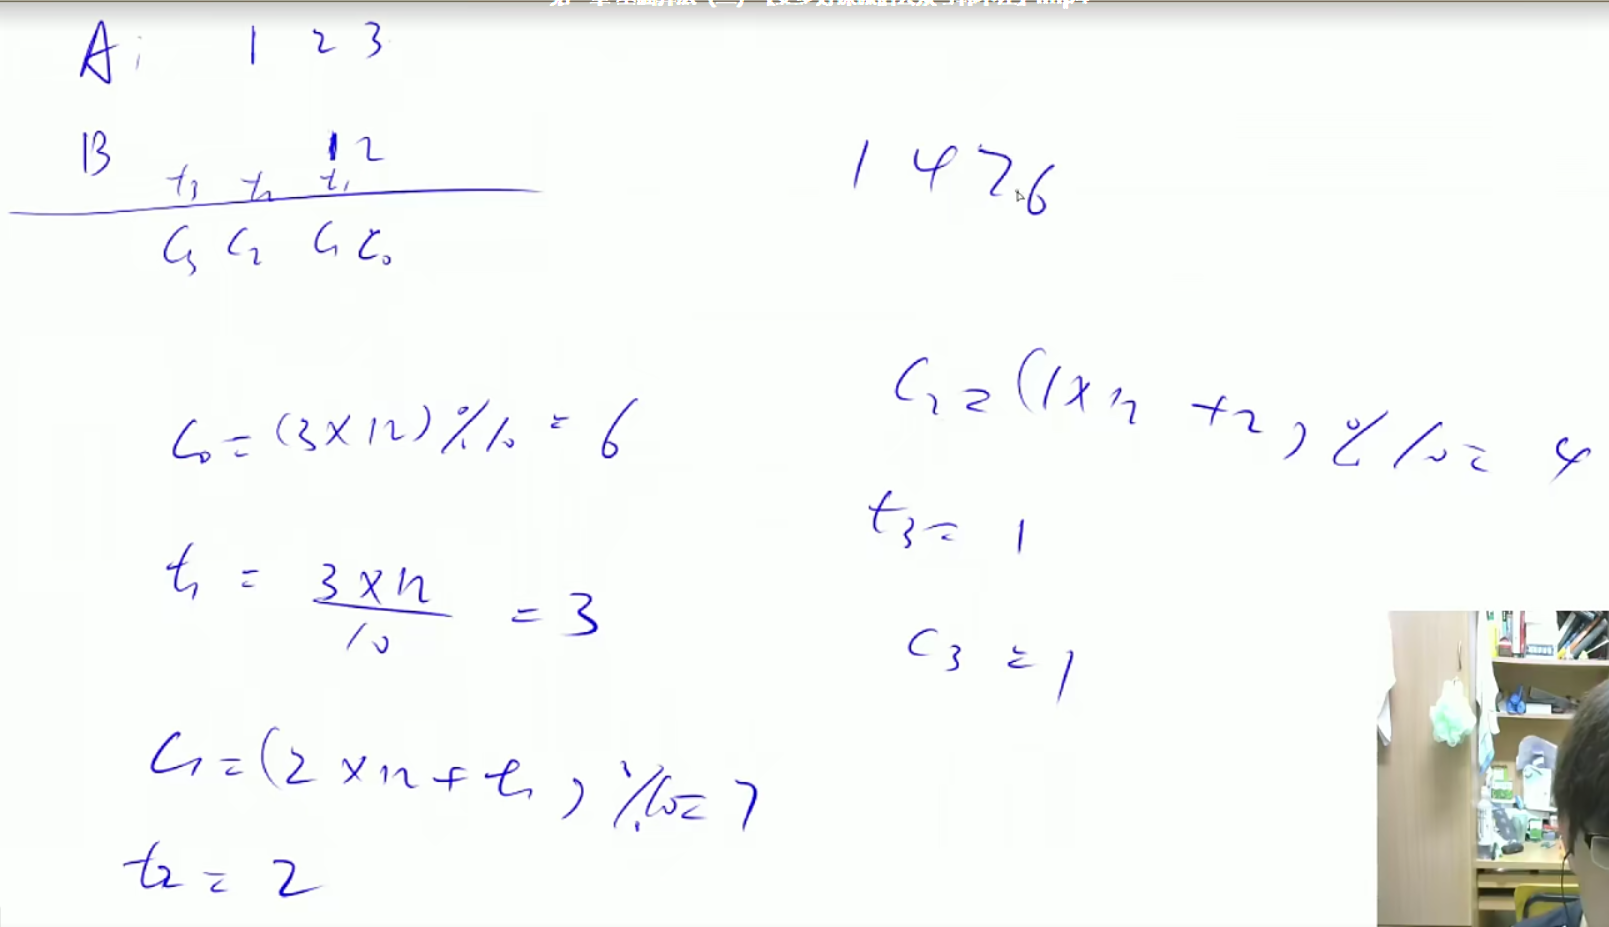 A: 1 2 3
B 12
t₃ t₂ t₁
C₃ C₂ C₁ C₀
1 4 7 6
C₀ = (3×12)%10 = 6
t₁ = 3×12 / 10 = 3
C₁ = (2×12 + t₁)%10 = 7
t₂ = 2
C₂ = (1×12 + 2)%10 = 4
t₃ = 1
C₃ = 1